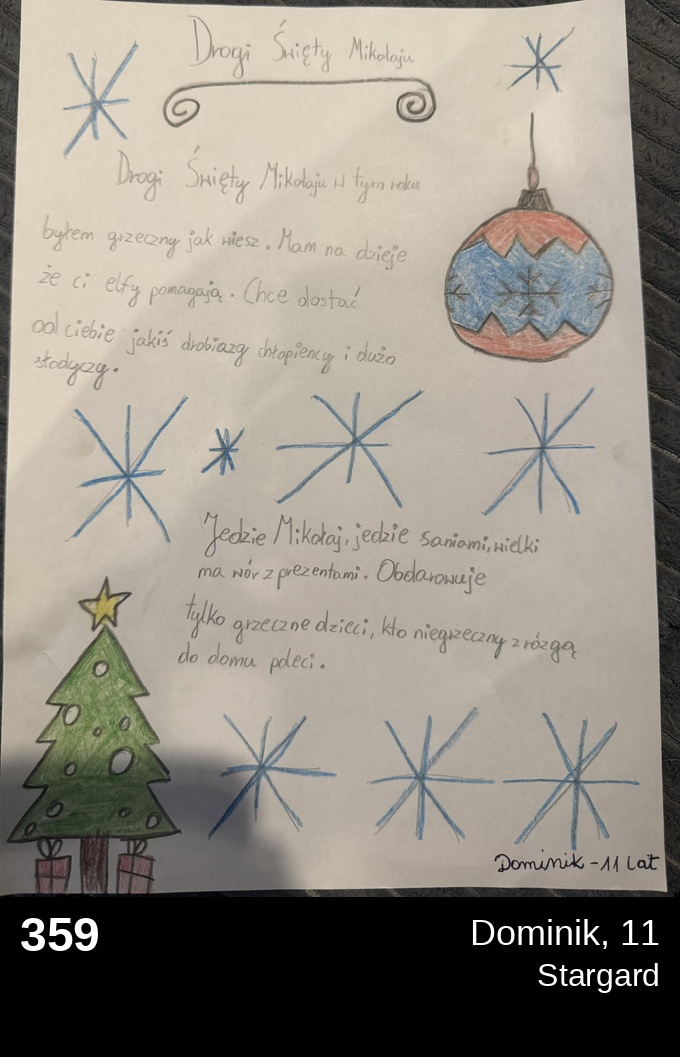 Drogi Święty Mikołaju
Drogi Święty Mikołaju w tym roku
byłem grzeczny jak wiesz. Mam na dzieje
że ci elfy pomagają. Chce dostać
od ciebie jakiś drobiazg chłopiency i dużo
słodyczy.
Jedzie Mikołaj, jedzie saniami, wielki
ma wór z prezentami. Obdarowuje
tylko grzeczne dzieci, kto niegrzeczny z rózgą
do domu poleci.
Dominik - 11 Lat
359
Dominik, 11
Stargard